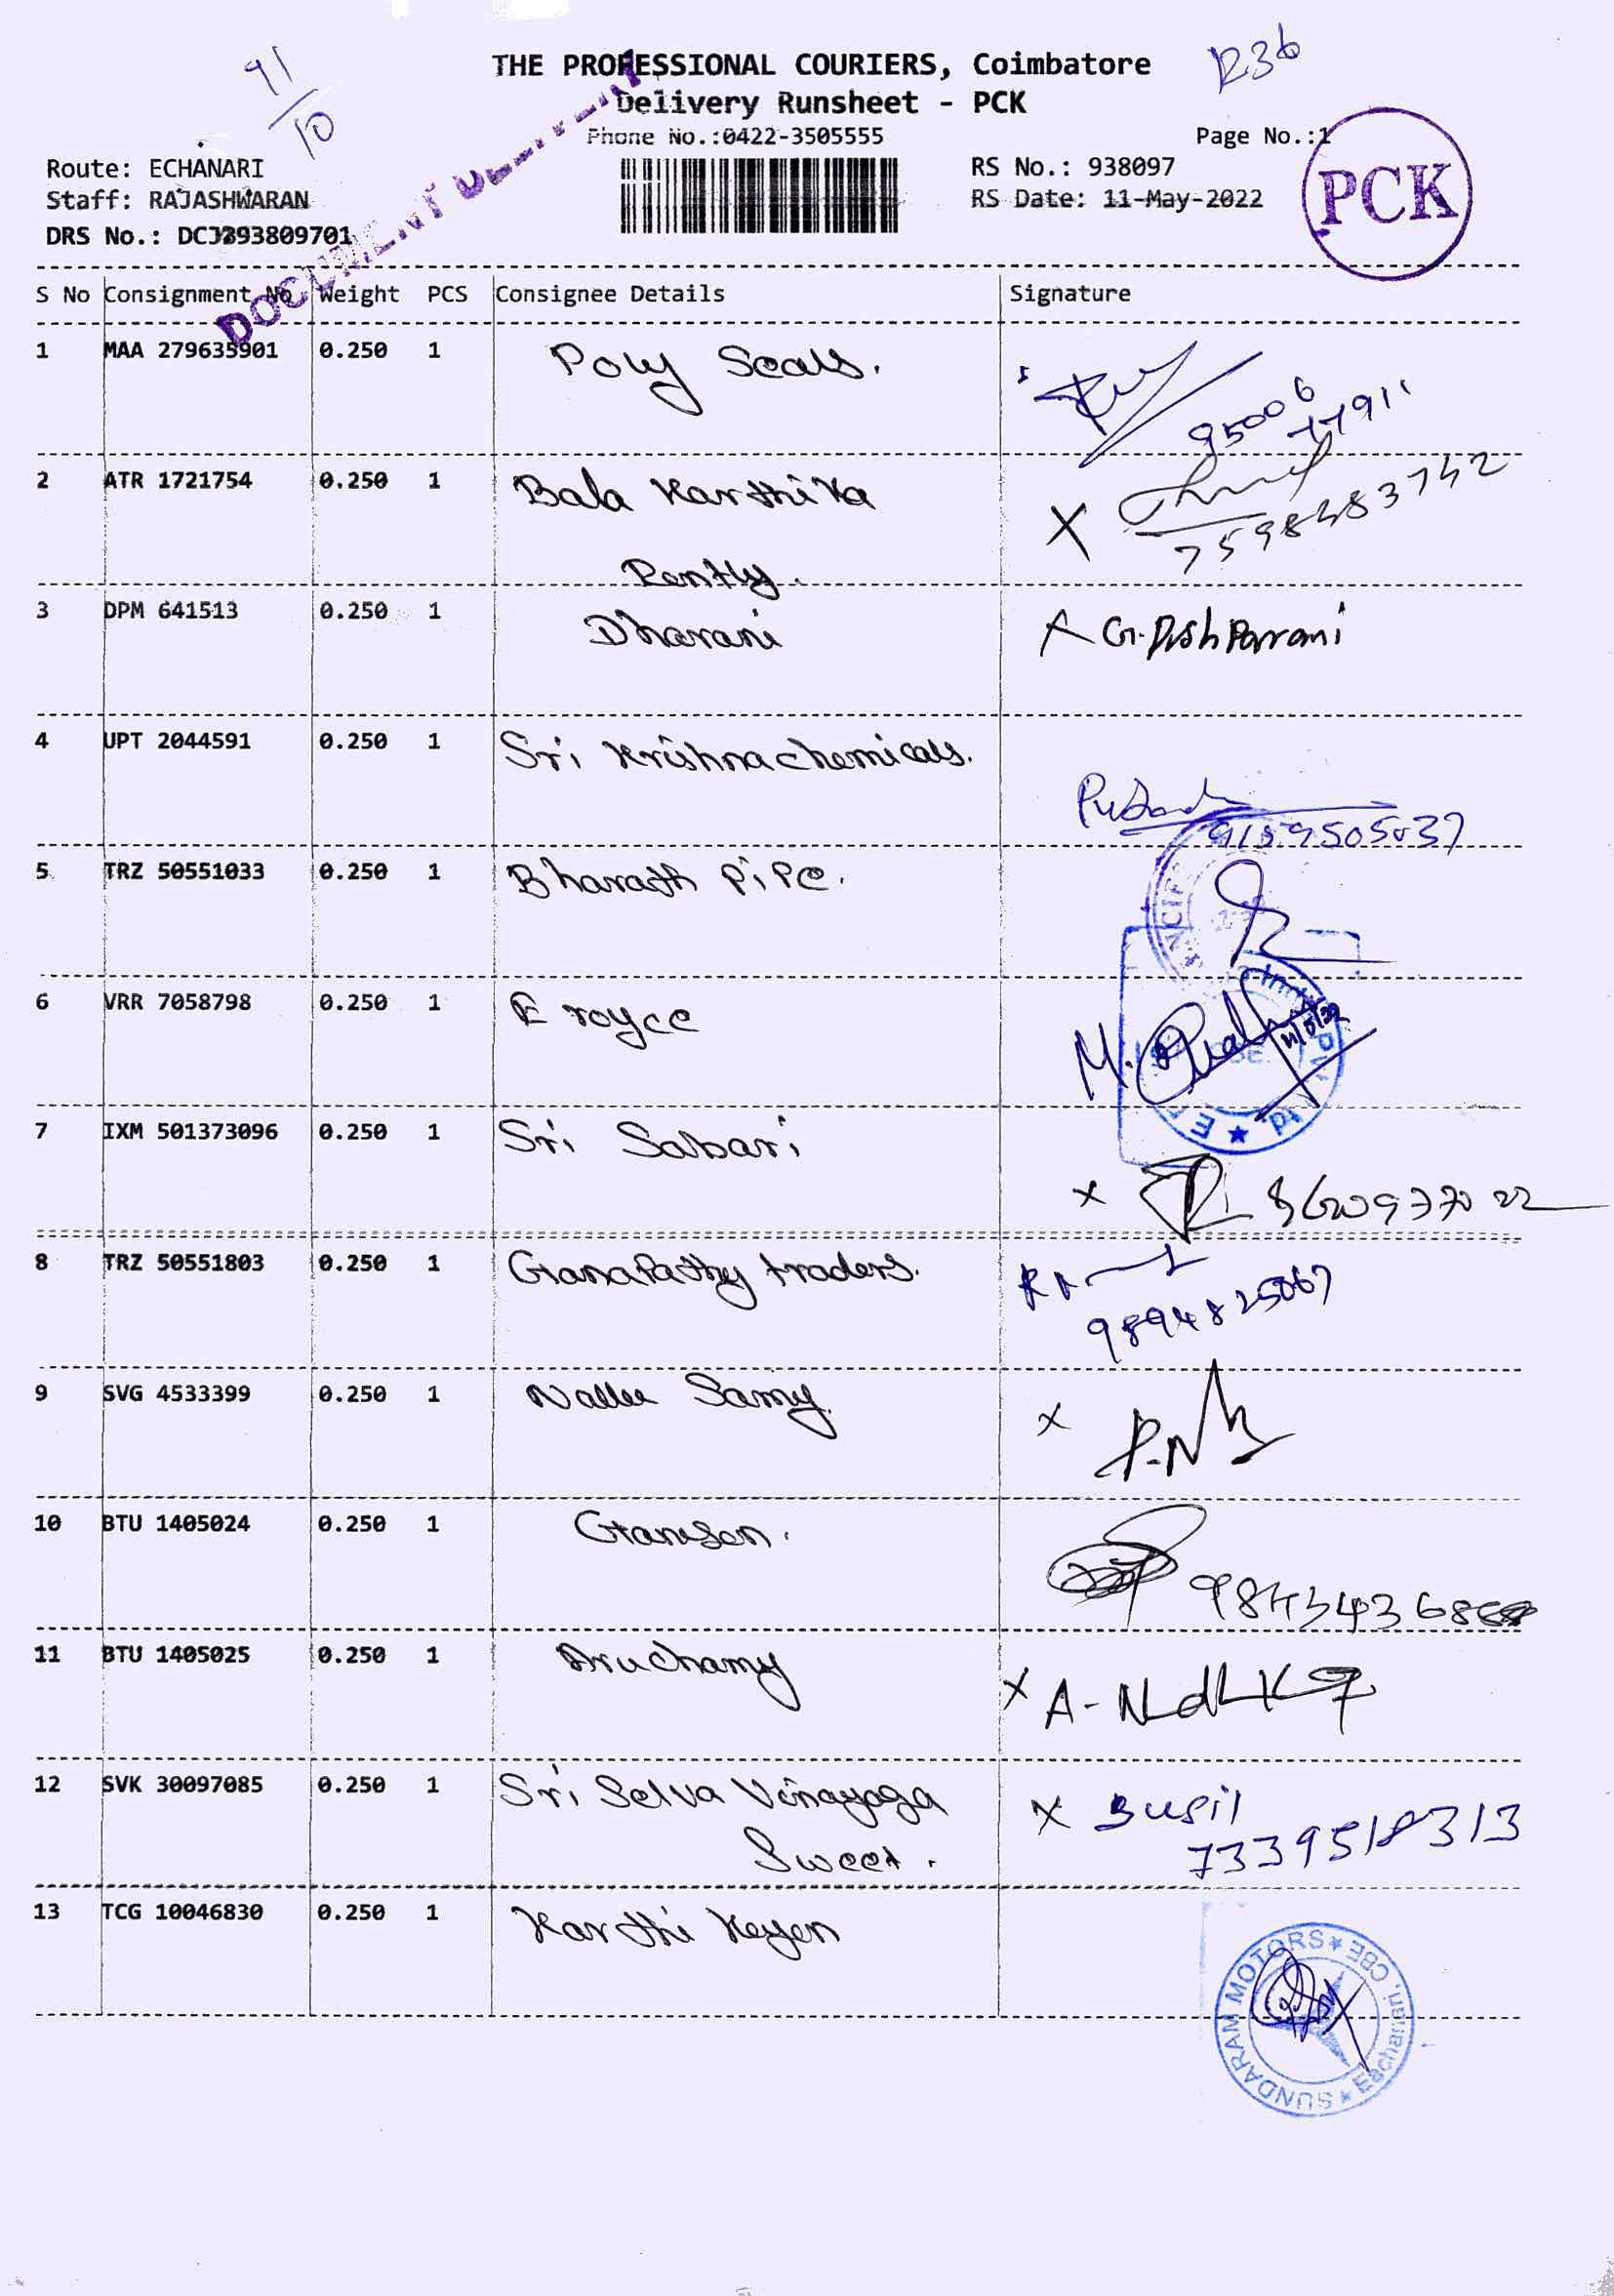 91/10
R36
THE PROFESSIONAL COURIERS, Coimbatore
Delivery Runsheet - PCK
Phone No.:0422-3505555
Page No.:1
Route: ECHANARI
RS No.: 938097
Staff: RAJASHWARAN
RS Date: 11-May-2022
PCK
DRS No.: DCJ393809701
DOCUMENT
S No Consignment No Weight PCS Consignee Details Signature
1 MAA 279635901 0.250 1 Poly Seals.
95006
77911
2 ATR 1721754 0.250 1 Bala Karthika
7598483742
Rently.
3 DPM 641513 0.250 1 Dharani
4 UPT 2044591 0.250 1 Sri Krishna chemicals.
9159505037
5 TRZ 50551033 0.250 1 Bharath Pipe.
6 VRR 7058798 0.250 1 E royce
M.
11/5/22
7 IXM 501373096 0.250 1 Sri Sabari
X
8 TRZ 50551803 0.250 1 GanaPathy traders.
9894825067
9 SVG 4533399 0.250 1 Nalla Samy.
X P.N
10 BTU 1405024 0.250 1 Ganesan.
11 BTU 1405025 0.250 1 Aruchamy
X A-
12 SVK 30097085 0.250 1 Sri Selva Vinayaga X Susil
Sweet. 7339518313
13 TCG 10046830 0.250 1 Karthi Keyen
SUNDARAM MOTORS ★ Eachanari, CBE ★